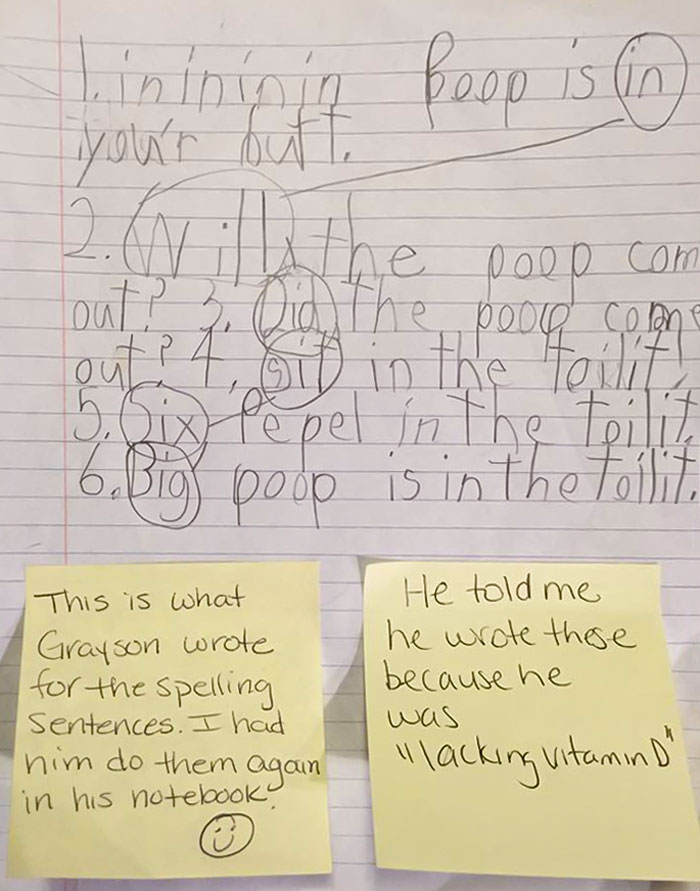 1. in in in in Poop is in
you'r butt.
2. Will the poop com
out? 3. Did the poop come
out? 4. sit in the toilit.
5. Six Pepel in the toilit.
6. Big poop is in the toilit.
This is what
Grayson wrote
for the spelling
sentences. I had
him do them again
in his notebook.
He told me
he wrote these
because he
was
"lacking vitamin D"